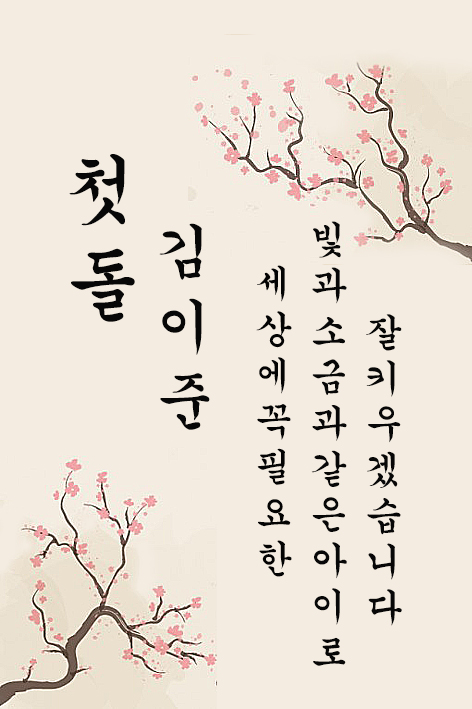 첫돌
김이준
세상에꼭필요한
빛과소금과같은아이로
잘키우겠습니다